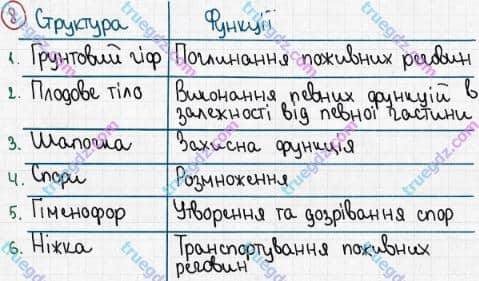 8 Структура Функції
1. Ґрунтовий гіф Поглинання поживних речовин
2. Плодове тіло Виконання певних функцій в
залежності від певної частини
3. Шапочка Захисна функція
4. Спори Розмноження
5. Гіменофор Утворення та дозрівання спор
6. Ніжка Транспортування поживних
речовин
truegdz.com